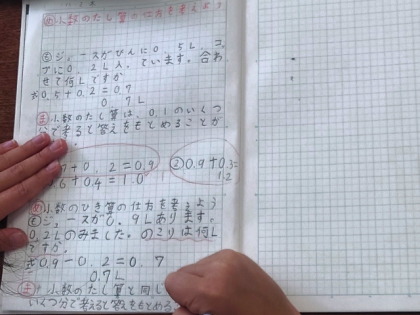 め 小数のたし算の仕方を考えよう
も ジュースがびんに0.5L コ
プに0.2L入っています。合わ
せて何Lですか
式 0.5+0.2=0.7
0.7L
ま 小数のたし算は、0.1のいくつ
分で考ると答えをもとめることが
+0.2=0.9 ② 0.9+0.3=
.6+0.4=1.0 1.2
め 小数のひき算の仕方を考えよう
も ジュースが0.9Lあります。
0.2Lのみました。のこりは何L
ですか。
式 0.9-0.2=0.7
0.7L
小数のたし算と同し
いくつ分で考ると答えをもとめる